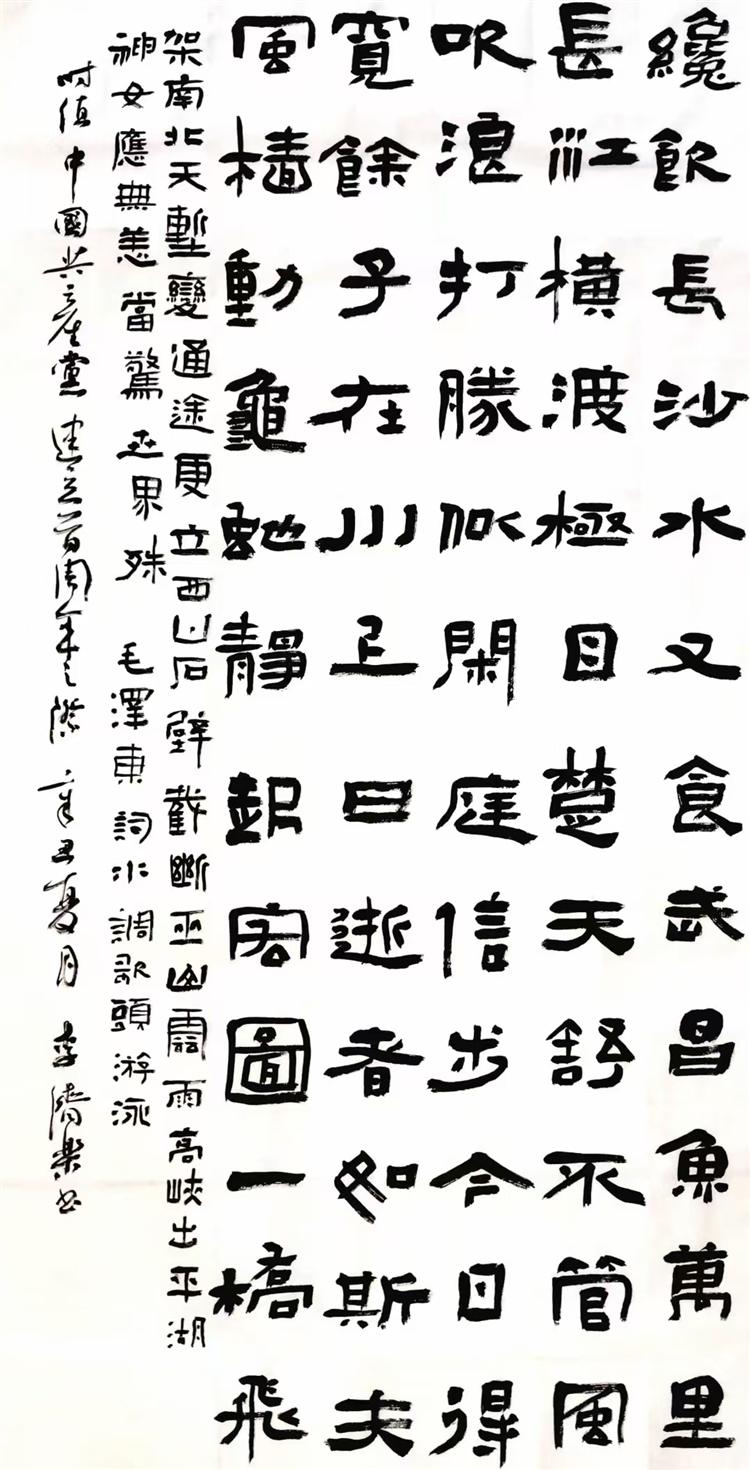 纔飲長沙水又食武昌魚萬里
長江橫渡極目楚天舒不管風
吹浪打勝似閑庭信步今日得
寬餘子在川上曰逝者如斯夫
風檣動龜蛇靜起宏圖一橋飛
架南北天塹變通途更立西山石壁截斷巫山雲雨高峽出平湖
神女應無恙當驚世界殊 毛澤東詞水調歌頭游泳
時值中國共產黨建立百周年之際 辛丑夏月 李濟樂書